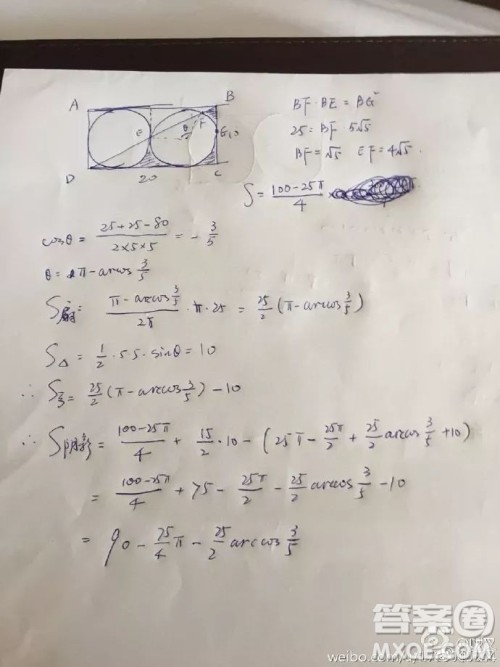 A B
E θ F G 10
D 20 C
BF · BE = BG²
25 = BF 5√5
BF = √5 EF = 4√5
S = (100-25π)/4
cosθ = (25+25-80)/(2×5×5) = -3/5
θ = π - arcos 3/5
S扇 = (π - arcos 3/5)/2π · π · 25 = 25/2 (π - arcos 3/5)
S△ = 1/2 · 5·5 · sinθ = 10
∴ S弓 = 25/2 (π - arcos 3/5) - 10
∴ S阴影 = (100-25π)/4 + 15/2 · 10 - (25π - 25π/2 + 25/2 arcos 3/5 + 10)
= (100-25π)/4 + 75 - 25π/2 - 25/2 arcos 3/5 - 10
= 90 - 75/4 π - 25/2 arc cos 3/5
答案圈
MXQE.COM